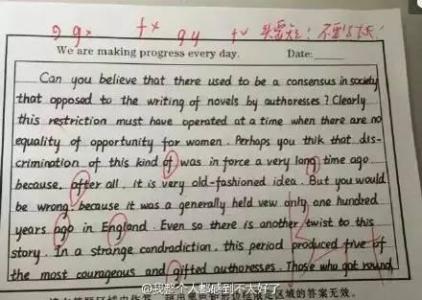 g g× t× g y t✓ 头要短！不要太长！
We are making progress every day. Date:
Can you believe that there used to be a consensus in society
that opposed to the writing of novels by authoresses? Clearly
this restriction must have operated at a time when there are no
equality of opportunity for women. Perhaps you thik that dis-
crimination of this kind of was in force a very long time ago
because, after all, it is very old-fashioned idea. But you would
be wrong, because it was a generally held vew only one hundred
years ago in England. Even so there is another twist to this
story. In a strange condradiction, this period produced five of
the most courageous and gifted authoresses. Those who got round
我整个人都感到不太好了